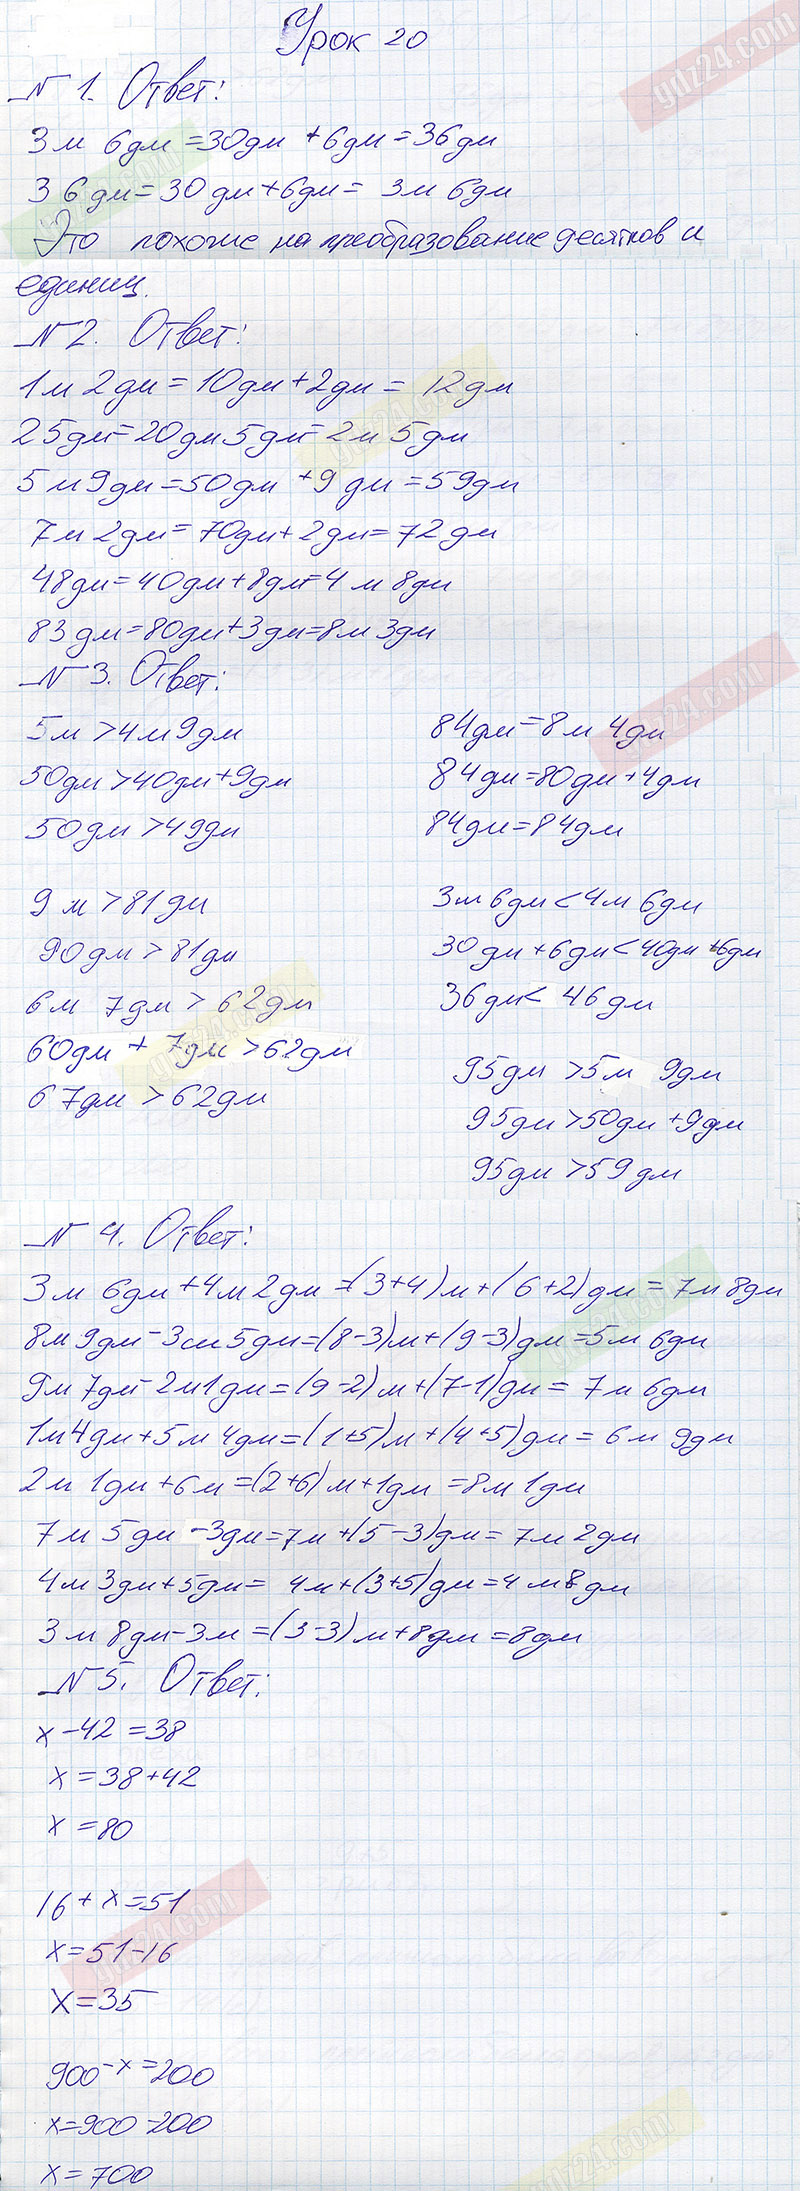 Урок 20
№ 1. Ответ:
3м 6дм = 30дм + 6дм = 36дм
36дм = 30дм + 6дм = 3м 6дм
Это похоже на преобразование десятков и
единиц.
№ 2. Ответ:
1м 2дм = 10дм + 2дм = 12дм
25дм = 20дм 5дм = 2м 5дм
5м 9дм = 50дм + 9дм = 59дм
7м 2дм = 70дм + 2дм = 72дм
48дм = 40дм + 8дм = 4м 8дм
83дм = 80дм + 3дм = 8м 3дм
№ 3. Ответ:
5м > 4м 9дм
50дм > 40дм + 9дм
50дм > 49дм
9м > 81дм
90дм > 81дм
6м 7дм > 62дм
60дм + 7дм > 62дм
67дм > 62дм
84дм = 8м 4дм
84дм = 80дм + 4дм
84дм = 84дм
3м 6дм < 4м 6дм
30дм + 6дм < 40дм + 6дм
36дм < 46дм
95дм > 5м 9дм
95дм > 50дм + 9дм
95дм > 59дм
№ 4. Ответ:
3м 6дм + 4м 2дм = (3+4)м + (6+2)дм = 7м 8дм
8м 9дм - 3см 5дм = (8-3)м + (9-3)дм = 5м 6дм
9м 7дм - 2м 1дм = (9-2)м + (7-1)дм = 7м 6дм
1м 4дм + 5м 4дм = (1+5)м + (4+5)дм = 6м 9дм
2м 1дм + 6м = (2+6)м + 1дм = 8м 1дм
7м 5дм - 3дм = 7м + (5-3)дм = 7м 2дм
4м 3дм + 5дм = 4м + (3+5)дм = 4м 8дм
3м 8дм - 3м = (3-3)м + 8дм = 8дм
№ 5. Ответ:
x - 42 = 38
x = 38 + 42
x = 80
16 + x = 51
x = 51 - 16
x = 35
900 - x = 200
x = 900 - 200
x = 700
gdz24.com
gdz24.com
gdz24.com
gdz24.com
gdz24.com
gdz24.com
gdz24.com
gdz24.com